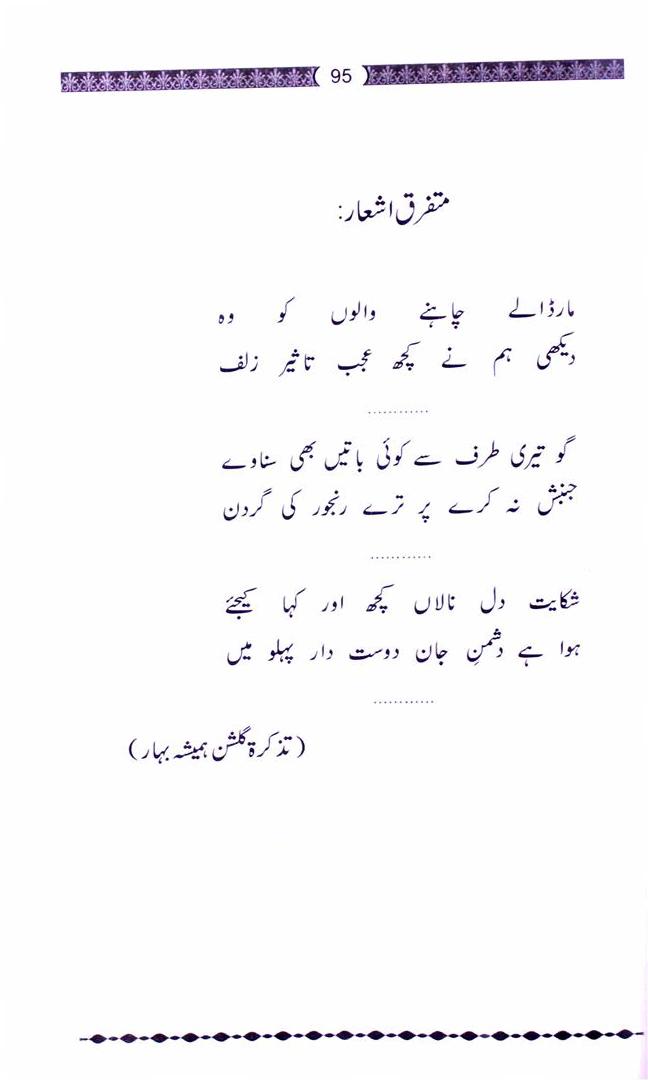 95
متفرق اشعار:
مارڈالے چاہنے والوں کو وہ
دیکھی ہم نے کچھ عجب تاثیر زلف
............
گو تیری طرف سے کوئی باتیں بھی سناوے
جنبش نہ کرے پر ترے رنجور کی گردن
............
شکایت دل نالاں کچھ اور کہا کیجئے
ہوا ہے دشمنِ جان دوست دار پہلو میں
............
(تذکرۃ گلشن ہمیشہ بہار)